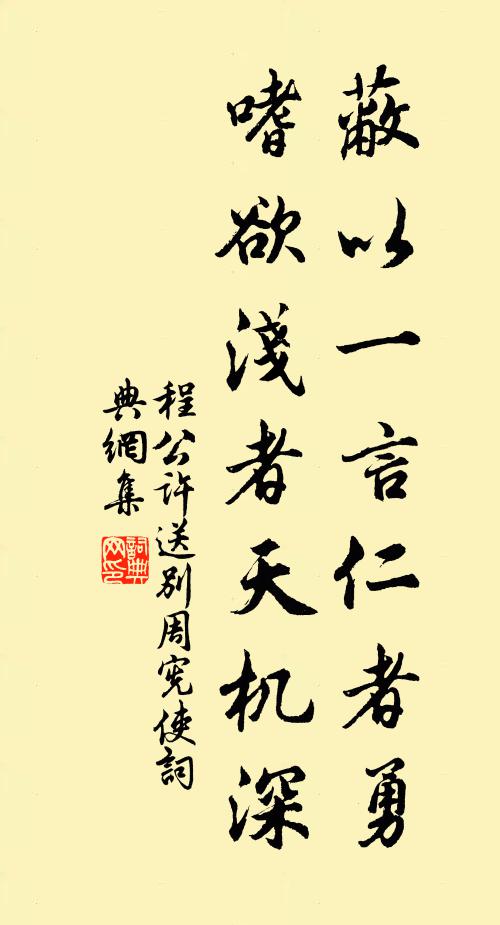 蔽以一言仁者勇
嗜欲淺者天机深
程公許送別周宪使詞
典網集
詞典
网印